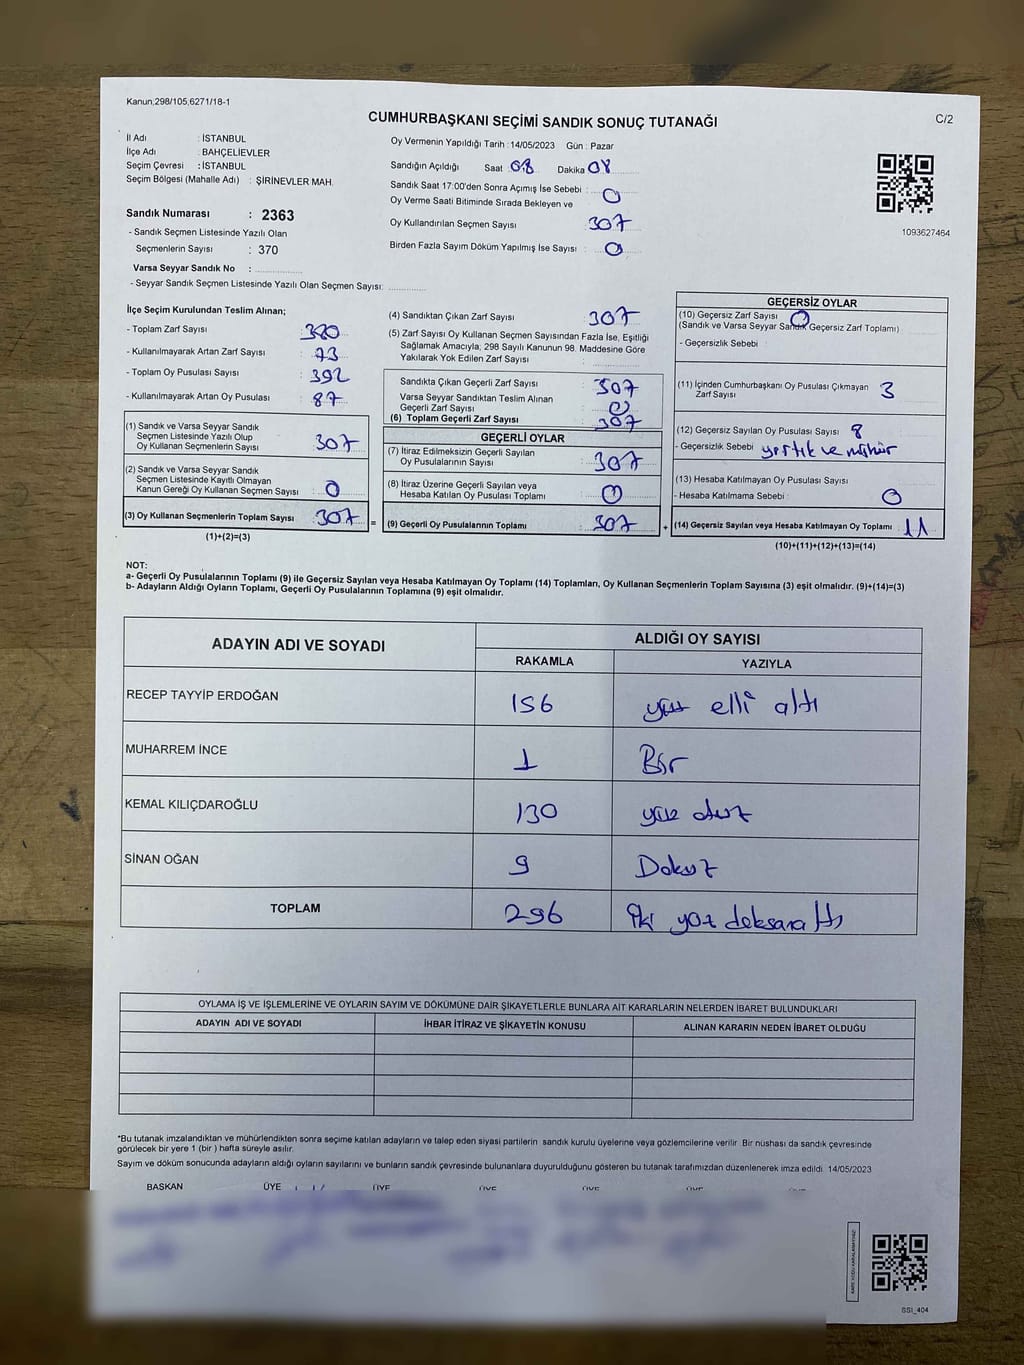 Kanun;298/105,6271/18-1
CUMHURBAŞKANI SEÇİMİ SANDIK SONUÇ TUTANAĞI
C/2
İl Adı : İSTANBUL
İlçe Adı : BAHÇELİEVLER
Seçim Çevresi : İSTANBUL
Seçim Bölgesi (Mahalle Adı) : ŞİRİNEVLER MAH.
Sandık Numarası : 2363
- Sandık Seçmen Listesinde Yazılı Olan
Seçmenlerin Sayısı : 370
Varsa Seyyar Sandık No :
- Seyyar Sandık Seçmen Listesinde Yazılı Olan Seçmen Sayısı:
Oy Vermenin Yapıldığı Tarih : 14/05/2023 Gün : Pazar
Sandığın Açıldığı Saat : 08 Dakika 08
Sandık Saat 17:00'den Sonra Açımış İse Sebebi :
Oy Verme Saati Bitiminde Sırada Bekleyen ve 0
Oy Kullandırılan Seçmen Sayısı : 307
Birden Fazla Sayım Döküm Yapılmış İse Sayısı : 0
1093627464
İlçe Seçim Kurulundan Teslim Alınan;
- Toplam Zarf Sayısı : 380
- Kullanılmayarak Artan Zarf Sayısı : 73
- Toplam Oy Pusulası Sayısı : 392
- Kullanılmayarak Artan Oy Pusulası : 87
(1) Sandık ve Varsa Seyyar Sandık
Seçmen Listesinde Yazılı Olup
Oy Kullanan Seçmenlerin Sayısı : 307
(2) Sandık ve Varsa Seyyar Sandık
Seçmen Listesinde Kayıtlı Olmayan
Kanun Gereği Oy Kullanan Seçmen Sayısı : 0
(3) Oy Kullanan Seçmenlerin Toplam Sayısı : 307 =
(1)+(2)=(3)
(4) Sandıktan Çıkan Zarf Sayısı : 307
(5) Zarf Sayısı Oy Kullanan Seçmen Sayısından Fazla İse, Eşitliği
Sağlamak Amacıyla, 298 Sayılı Kanunun 98. Maddesine Göre
Yakılarak Yok Edilen Zarf Sayısı :
Sandıkta Çıkan Geçerli Zarf Sayısı : 307
Varsa Seyyar Sandıktan Teslim Alınan
Geçerli Zarf Sayısı : 0
(6) Toplam Geçerli Zarf Sayısı : 307
GEÇERLİ OYLAR
(7) İtiraz Edilmeksizin Geçerli Sayılan
Oy Pusulalarının Sayısı : 307
(8) İtiraz Üzerine Geçerli Sayılan veya
Hesaba Katılan Oy Pusulası Toplamı : 0
(9) Geçerli Oy Pusulalarının Toplamı : 307 +
GEÇERSİZ OYLAR
(10) Geçersiz Zarf Sayısı : 0
(Sandık ve Varsa Seyyar Sandık Geçersiz Zarf Toplamı)
- Geçersizlik Sebebi :
(11) İçinden Cumhurbaşkanı Oy Pusulası Çıkmayan
Zarf Sayısı : 3
(12) Geçersiz Sayılan Oy Pusulası Sayısı : 8
- Geçersizlik Sebebi : yırtık ve mühür
(13) Hesaba Katılmayan Oy Pusulası Sayısı :
- Hesaba Katılmama Sebebi : 0
(14) Geçersiz Sayılan veya Hesaba Katılmayan Oy Toplamı : 11
(10)+(11)+(12)+(13)=(14)
NOT:
a- Geçerli Oy Pusulalarının Toplamı (9) ile Geçersiz Sayılan veya Hesaba Katılmayan Oy Toplamı (14) Toplamları, Oy Kullanan Seçmenlerin Toplam Sayısına (3) eşit olmalıdır. (9)+(14)=(3)
b- Adayların Aldığı Oyların Toplamı, Geçerli Oy Pusulalarının Toplamına (9) eşit olmalıdır.
ADAYIN ADI VE SOYADI ALDIĞI OY SAYISI
RAKAMLA YAZIYLA
RECEP TAYYİP ERDOĞAN 156 yüz elli altı
MUHARREM İNCE 1 Bir
KEMAL KILIÇDAROĞLU 130 yüz otuz
SİNAN OĞAN 9 Dokuz
TOPLAM 296 iki yüz doksanaltı
OYLAMA İŞ VE İŞLEMLERİNE VE OYLARIN SAYIM VE DÖKÜMÜNE DAİR ŞİKAYETLERLE BUNLARA AİT KARARLARIN NELERDEN İBARET BULUNDUKLARI
ADAYIN ADI VE SOYADI İHBAR İTİRAZ VE ŞİKAYETİN KONUSU ALINAN KARARIN NEDEN İBARET OLDUĞU
*Bu tutanak imzalandıktan ve mühürlendikten sonra seçime katılan adayların ve talep eden siyasi partilerin sandık kurulu üyelerine veya gözlemcilerine verilir. Bir nüshası da sandık çevresinde
görülecek bir yere 1 (bir ) hafta süreyle asılır.
Sayım ve döküm sonucunda adayların aldığı oyların sayılarını ve bunların sandık çevresinde bulunanlara duyurulduğunu gösteren bu tutanak tarafımızdan düzenlenerek imza edildi. 14/05/2023
BAŞKAN ÜYE ÜYE ÜYE ÜYE ÜYE
SSI_404